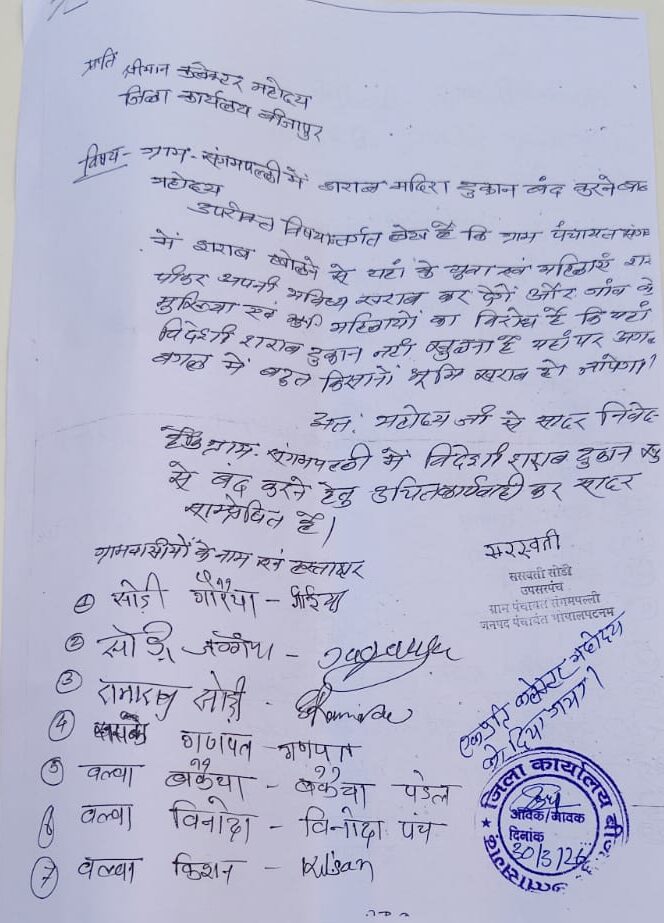 प्रति श्रीमान कलेक्टर महोदय
जिला कार्यालय बीजापुर
विषय - ग्राम - संगमपल्ली में शराब मदिरा दुकान बंद करने बाब
महोदय
उपरोक्त विषयान्तर्गत लेख है कि ग्राम पंचायत संगम
में शराब खोलने से यहां के युवा एवं महिलाएं शरा
पीकर अपनी भविष्य खराब कर देंगे और गांव के
मुखिया एवं महिलायों का विरोध है कि यहां
विदेशी शराब दुकान नहीं खुलना है यहां पर अगल
बगल में बहुत किसानों भूमि खराब हो जायेगा?
अतः महोदय जी से सादर निवेद-
है कि ग्राम. संगमपल्ली में विदेशी शराब दुकान खु
से बंद करने हेतु उचित कार्यवाही कर सादर
सम्प्रेषित है।
ग्रामवासीयों के नाम एवं हस्ताक्षर
1 सोड़ी गौरैया -
2 सोड़ी जग्गैया -
3 रामाराव सोड़ी -
4 गणपत - गणपत
5 वल्वा बकैया - बकैया पटेल
6 वल्वा विनोदा - विनोदा पंच
7 वल्वा किशन - Kishan
सरस्वती
सरस्वती सोडी
उपसरपंच
ग्राम पंचायत संगमपल्ली
जनपद पंचायत भोपालपटनम
एक प्रति कलेक्टर महोदय
को दिया गया।
जिला कार्यालय बीजा
आवक/जावक
दिनांक
20/3/26
छत्तीसगढ़